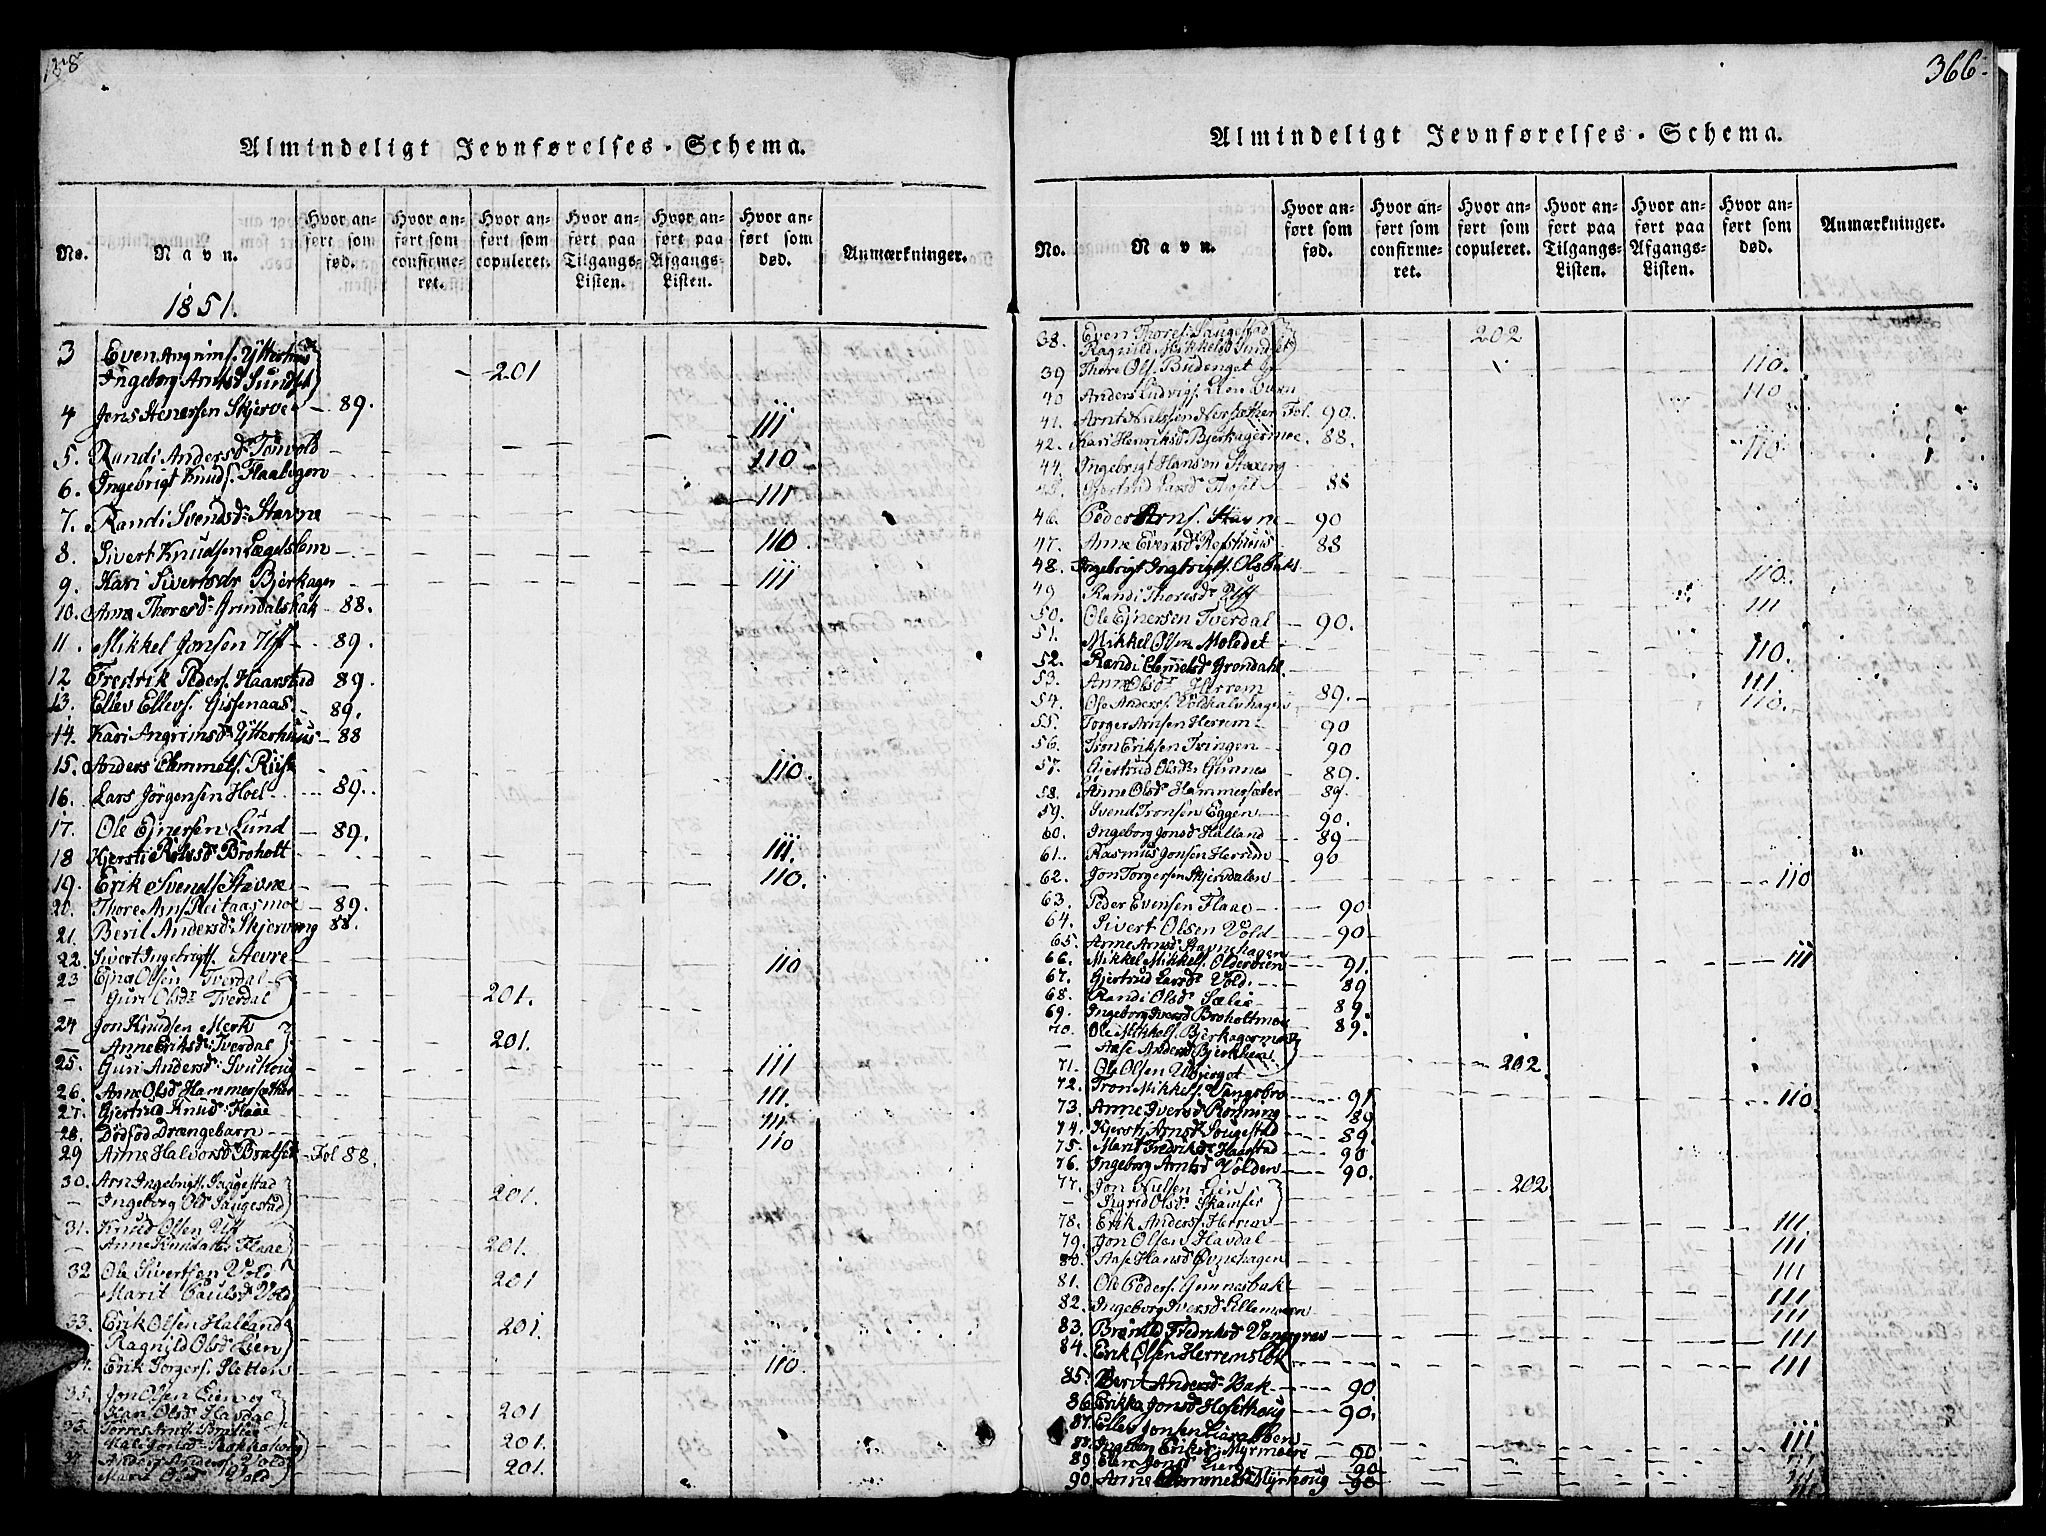 Almindeligt Jevnførelses-Schema.
No.
Navn.
Hvor anført som fød.
Hvor anført som confirmeret.
Hvor anført som copuleret.
Hvor anført paa Tilgangs-Listen.
Hvor anført paa Afgangs-Listen.
Hvor anført som død.
Anmærkninger.
1851.
3 Even Angrims. Ytterhus
Ingeborg Arntsd. Sundset 201
4 Jens Stenersen Skjerve 89.
111
5. Randi Andersd.
110
6. Ingebrigt Knuds. Flaahagen
111
7. Randi Svendsd. Stavne
8. Sivert Knudsen 110
9. Kari Sivertsdr Bjerkager 111
10. Anne Thoresd. Grindalskak 88.
11. Mikkel Jonsen Uff 89.
12 Fredrik Peders. Haarstad 89.
13. Ellev Ellevs. Gissenaas 89.
14. Kari Angrimsd. Ytterhuus 88
15. Anders Clemmets. Riise 110.
16. Lars Jörgensen Hoel 89.
17. Ole Ejnersen Lund 89.
18 Kjersti Broholt 111.
19. Erik Svends Stavne 110.
20. Thore Arns. Reitaasmoe 89.
21. Beril Andersd. Skjerveng 88.
22. Sivert Ingebrigts. Stevre 110
23 Olsen Tverdal
Guri Olsd. Tverdal 201.
24 Jon Knudsen Merk
Anne Eriksd. Tverdal 201.
25. Guri Andersd. 111
26. Anne Olsd. Hammersæther 111.
27. Gjertrud Knuds. Flaae 111.
28. Dödföd Drængebarn 110
29 Anne Halvorsd. Fol 88.
30. Arn Ingebrigts. Saugestad
Ingeborg Olsd. Saugestad 201
31. Knud Olsen Uff
Anne Flaae 201.
32 Ole Sivertsen Vold
Marit Paulsd. Vold 201
33. Erik Olsen Halland
Ragnild Olsd. Lien 201.
34. Erik Torgers. Sletten 110
35. Jon Olsen Lien og
Kari Olsd. Havdal 201
201.
Anders Anders. Vold
Marit Olsd. Vold 201.
366.
Almindeligt Jevnførelses-Schema.
No.
Navn.
Hvor anført som fød.
Hvor anført som confirmeret.
Hvor anført som copuleret.
Hvor anført paa Tilgangs-Listen.
Hvor anført paa Afgangs-Listen.
Hvor anført som død.
Anmærkninger.
38. Even Thores. Saugestad
Ragnild Mikkelsd. Sundset 202
39 Thore Ols. Budenget 110.
40 Anders Ludvigs. 110
41. Arnt Nielssen Fol. 90.
42. Kari Henriksd. Bjerkagermoe 88.
44. Ingebrigt Hansen 110.
45. Gjertrud Larsd. 88
46. Peder Arns. Stavne 90
47. Anne Evensd. Refshuus 88
48. Ingebrigt Olsbak 110.
49 Randi Thoresd. Uff 111
50. Ole Ejnersen Tverdal 90.
51. Mikkel Olsen 110.
52. Randi Grondahl 111.
53. Anne Olsd. Herrem 89.
54. Ole Anders. 110.
55. Torger Arnsen Herrem 90
56. Tron Eriksen Tvingen 90
57. Gjertrud Olsd. Gunnes 89.
58. Anne Olsd. Hammersæter 89.
59. Svend Tronsen Eggen 90.
60. Ingeborg Jonsd. Halland 89
61. Rasmus Jonsen Herrem 90
62. Jon Torgersen Skjerdalen 110
63. Peder Evensen Flaae 90
64. Sivert Olsen Vold 90
65. Anne Arnsd. Stavnehagen 111
66. Mikkel Mikkels. 91.
67. Gjertrud Larsd. Vold 89
68. Randi Olsd. 89.
69. Ingeborg Iversd. Broholtmoe 89.
70. Ole Mikkels. Bjerkagermoe
Aase Andersd. 202.
71. Ole Olsen 110.
72. Tron Mikkels. Vangsbro 91
73. Anne Iversd. Rönning 89
74. Kjersti Arnsd. Sougestad 89.
75. Marit Fredriksd. Haarstad 90
76. Ingeborg Arntsd. Volden 90.
77. Jon Nilsen Lien
Sigrid Olsd. Skamfer 202
78. Erik Anders. Herrem 111
79. Jon Olsen Havdal 111
80. Aase Hansd. 111
81. Ole Peders. Gunnesbak 111
82. Ingeborg Iversd. 111
83. Fredriksd. 111
84. Erik Olsen 111
85. Berit Andersd. Bak 90.
86 Erikka Jonsd. 90.
87. Ellev Jonsen 111
88. Ingeborg Eriksd. Myrmoen 90
89 Jonsd. Lien 90
90. Anne 90